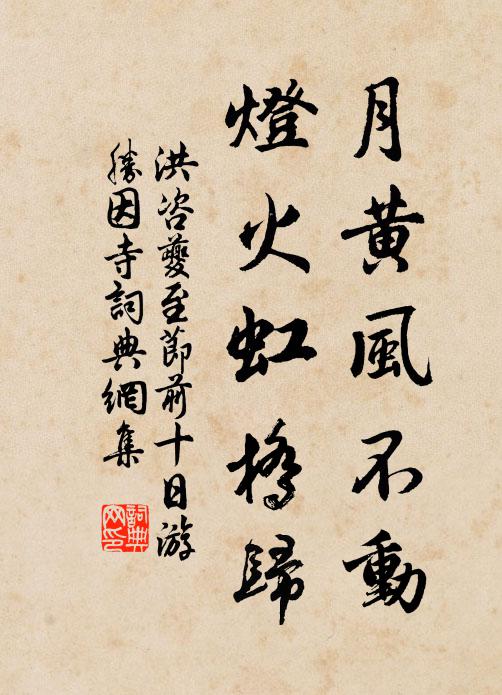 月黄風不動
燈火虹橋歸
洪咨夔至節前十日游
勝因寺詞典網集
詞典
网印